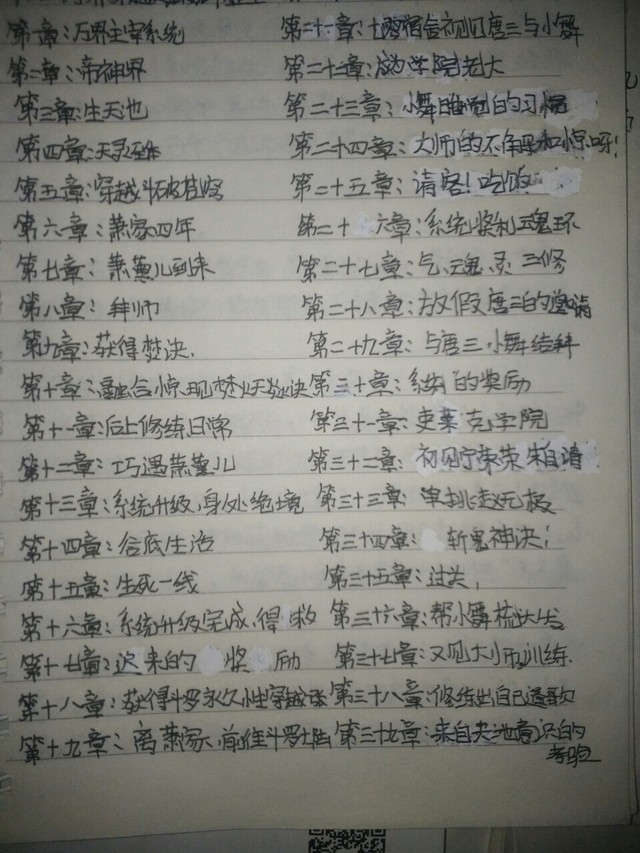 第一章:万界主宰系统
第二章:帝神界
第三章:生天池
第四章:天灵圣体
第五章:穿越斗破苍穹
第六章:萧家四年
第七章:萧薰儿到来
第八章:拜师
第九章:获得焚决.
第十章:融合惊现焚火天炎决
第十一章:后山修练日常
第十二章:巧遇萧薰儿
第十三章:系统升级,身处绝境
第十四章:谷底生活
第十五章:生死一线
第十六章:系统升级完成,得救
第十七章:迟来的奖励
第十八章:获得斗罗永久性穿越
第十九章:离萧家,前往斗罗大陆
第二十一章:七舍宿舍初见唐三与小舞
第二十二章:成为学院老大
第二十三章:小舞睡觉的习惯
第二十四章:大师的不作呀!
第二十五章:请客!吃饭
第二十六章:系统奖礼魂环
第二十七章:气、魂、灵三修
第二十八章:放假唐三的邀请
第二十九章:与唐三小舞结拜
第三十章:系统的奖励
第三十一章:史莱克学院
第三十二章:初见宁荣荣朱自清
第三十三章:单挑赵无极
第三十四章:斩鬼神决!
第三十五章:过关,
第三十六章:帮小舞梳头发
第三十七章:又见大小而训练.
第三十八章:修练出自己
第三十九章:来自天地意识的
考验